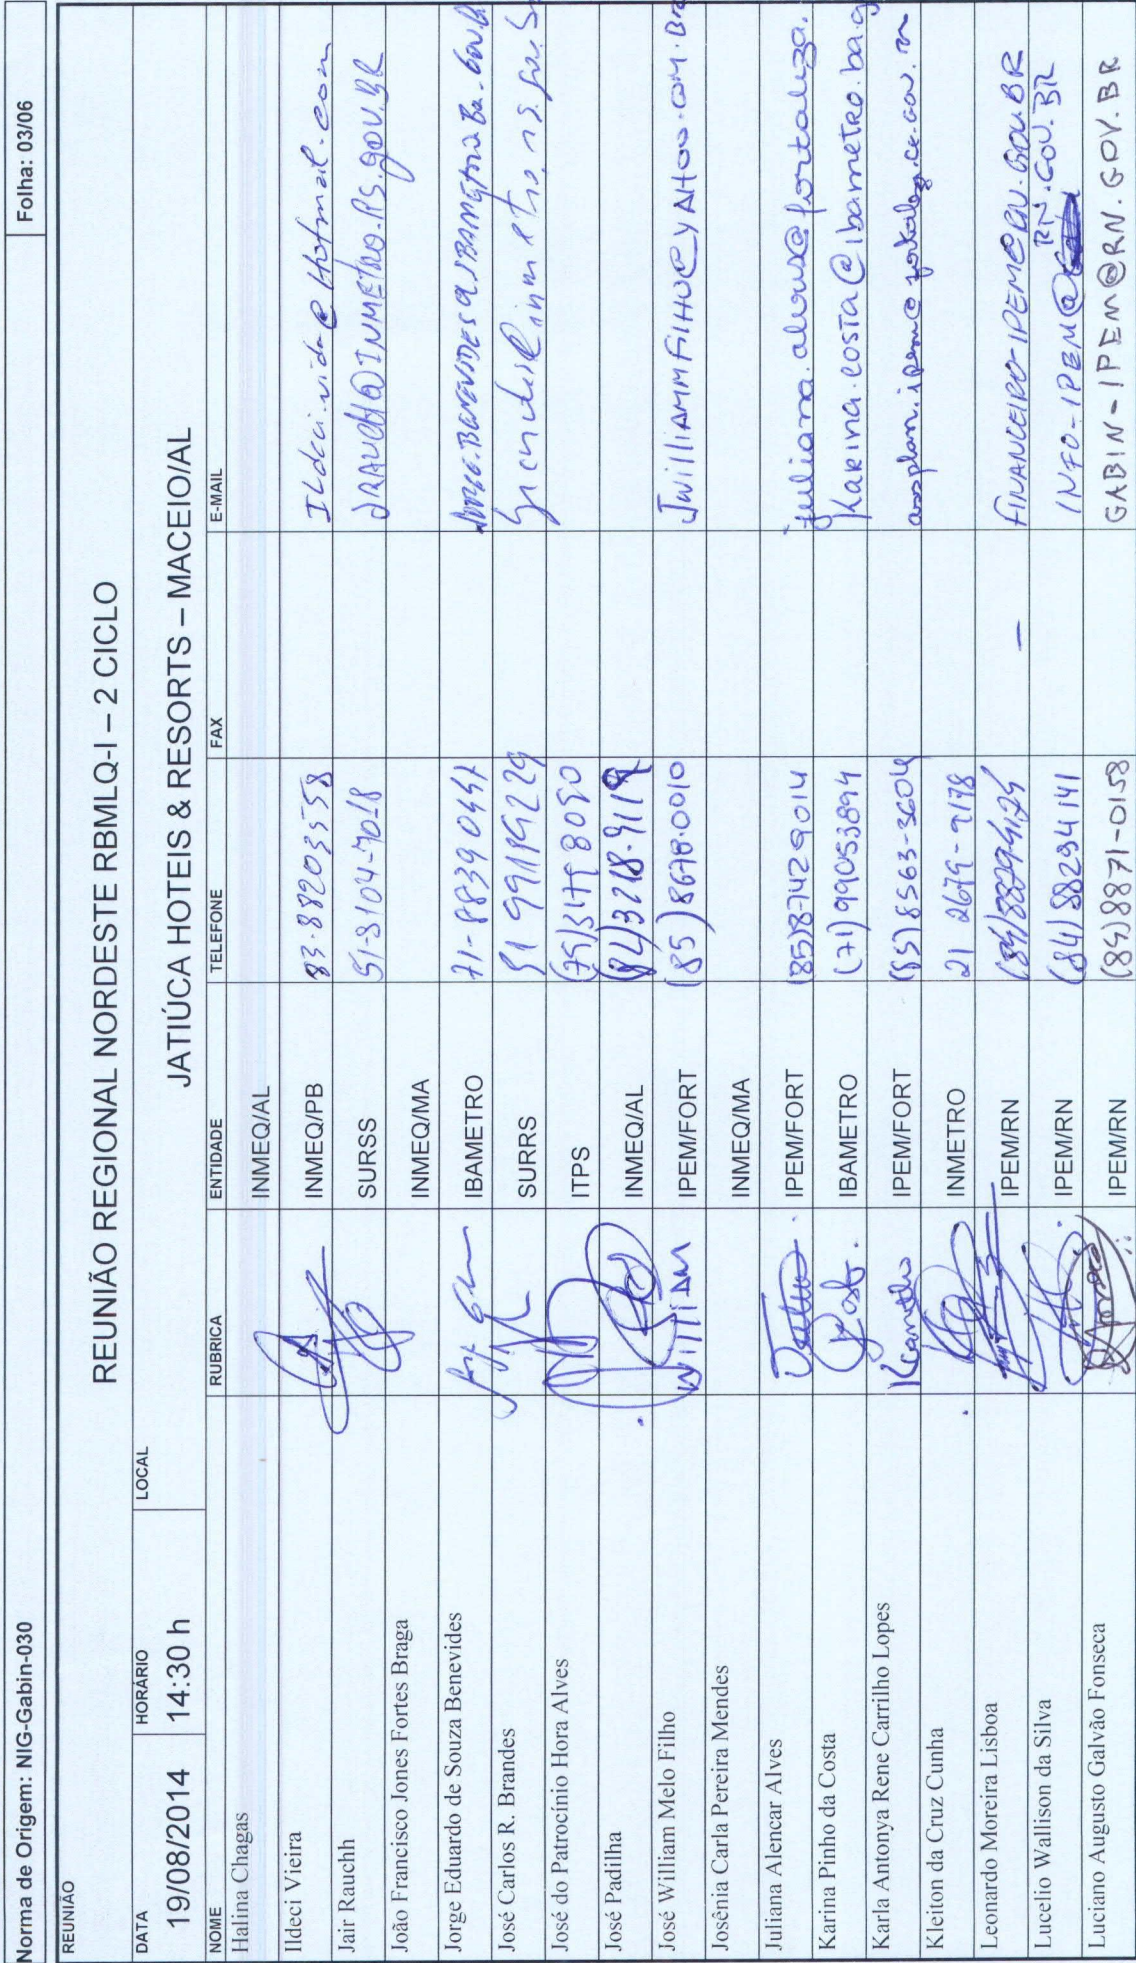 Norma de Origem: NIG-Gabin-030 Folha: 03/06
REUNIÃO
REUNIÃO REGIONAL NORDESTE RBMLQ-I – 2 CICLO
DATA HORÁRIO LOCAL
19/08/2014 14:30 h JATIÚCA HOTEIS & RESORTS – MACEIO/AL
NOME RUBRICA ENTIDADE TELEFONE FAX E-MAIL
Halina Chagas INMEQ/AL
Ildeci Vieira INMEQ/PB 83-88203558 Ildeci.vida@Hotmail.com
Jair Rauchh SURSS 51-8104-7018
João Francisco Jones Fortes Braga INMEQ/MA
Jorge Eduardo de Souza Benevides IBAMETRO 71-88390447
José Carlos R. Brandes SURRS 51 99119229
José do Patrocínio Hora Alves ITPS
José Padilha INMEQ/AL
José William Melo Filho William IPEM/FORT (85)8678.0010 JwilliAMMFilHO@yAHOO.COM.Br
Josênia Carla Pereira Mendes INMEQ/MA
Juliana Alencar Alves IPEM/FORT (85)87429014
Karina Pinho da Costa Costa. IBAMETRO (71)99053894 Karina.costa@ibametro.ba.g
Karla Antonya Rene Carrilho Lopes IPEM/FORT (85)8563-3604
Kleiton da Cruz Cunha INMETRO 21 2679-9178
Leonardo Moreira Lisboa IPEM/RN –
Lucelio Wallison da Silva IPEM/RN (84)88294141 INFO-IPEM@ RN.GOV.BR
Luciano Augusto Galvão Fonseca IPEM/RN (84)8871-0158 GABIN-IPEM@RN.GOV.BR